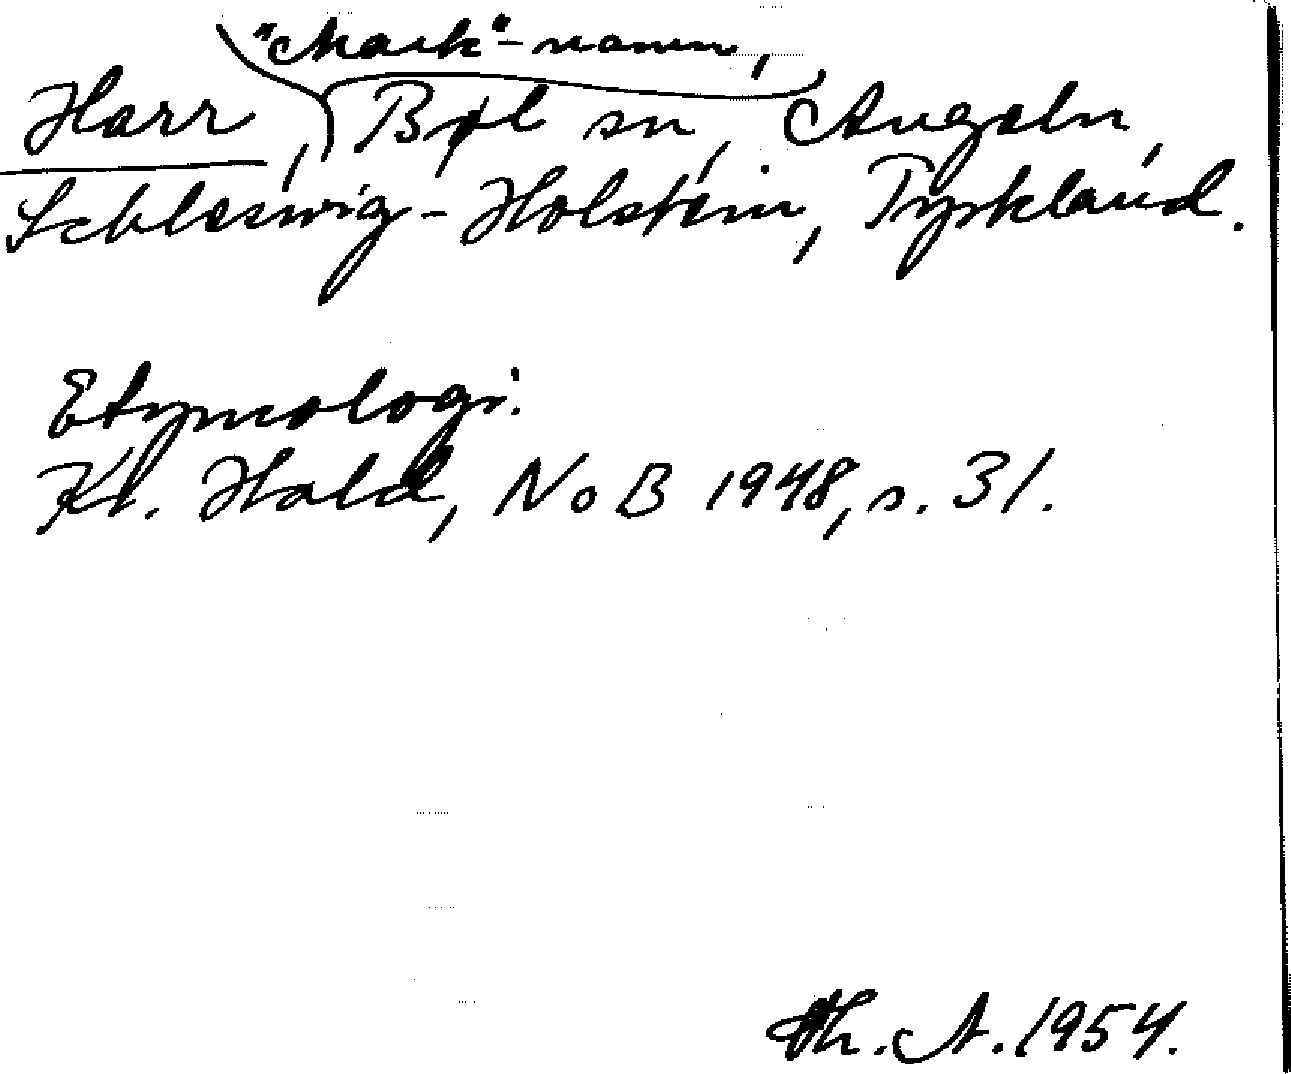 "Mark"-namn,
Harr, Bøl sn, Angeln,
Schleswig-Holstein, Tyskland.
Etymologi:
Kr. Hald, NoB 1948, s. 31.
Th. A. 1954.